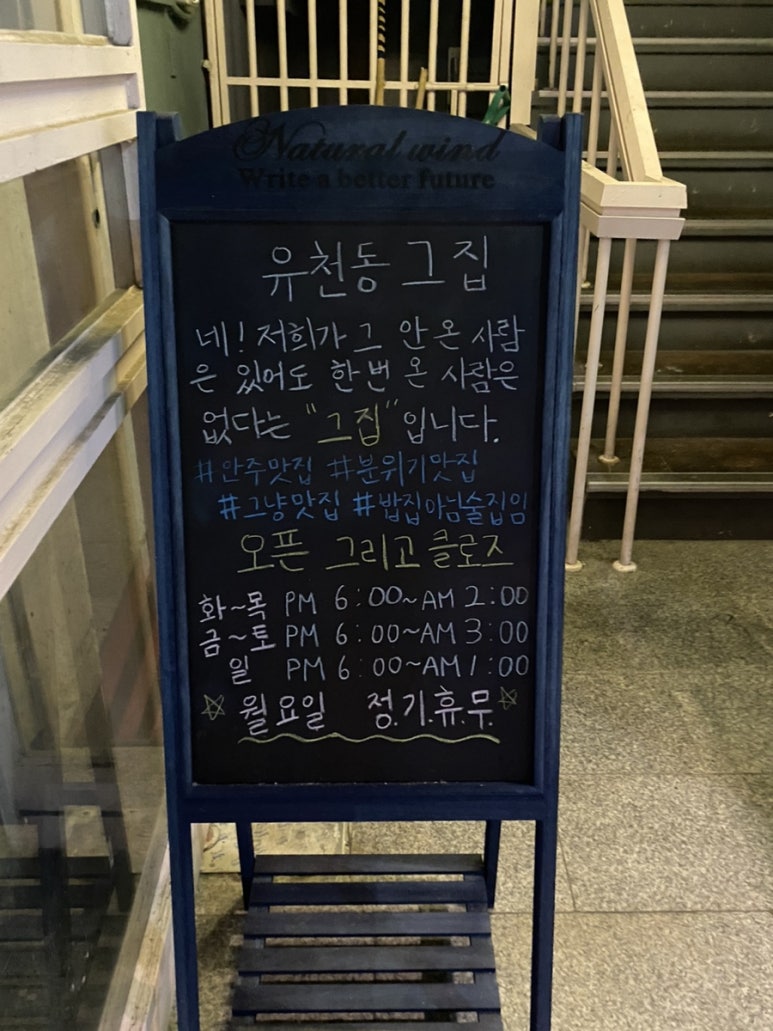 Natural wind
Write a better future
유천동 그 집
네! 저희가 그 안 온 사람
은 있어도 한 번 온 사람은
없다는 "그집"입니다.
#안주맛집 #분위기맛집
#그냥맛집 #밥집아님술집임
오픈 그리고 클로즈
화~목 PM 6:00~AM 2:00
금~토 PM 6:00~AM 3:00
일 PM 6:00~AM 1:00
☆ 월요일 정.기.휴.무. ☆